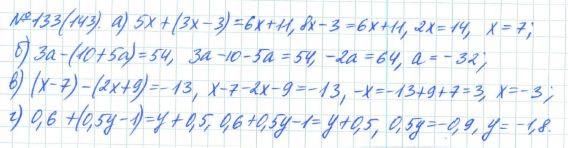 №133(143). а) 5x+(3x-3)=6x+11, 8x-3=6x+11, 2x=14, x=7;
б) 3a-(10+5a)=54, 3a-10-5a=54, -2a=64, a=-32;
в) (x-7)-(2x+9)=-13, x-7-2x-9=-13, -x=-13+9+7=3, x=-3;
г) 0,6+(0,5y-1)=y+0,5, 0,6+0,5y-1=y+0,5, 0,5y=-0,9, y=-1,8.